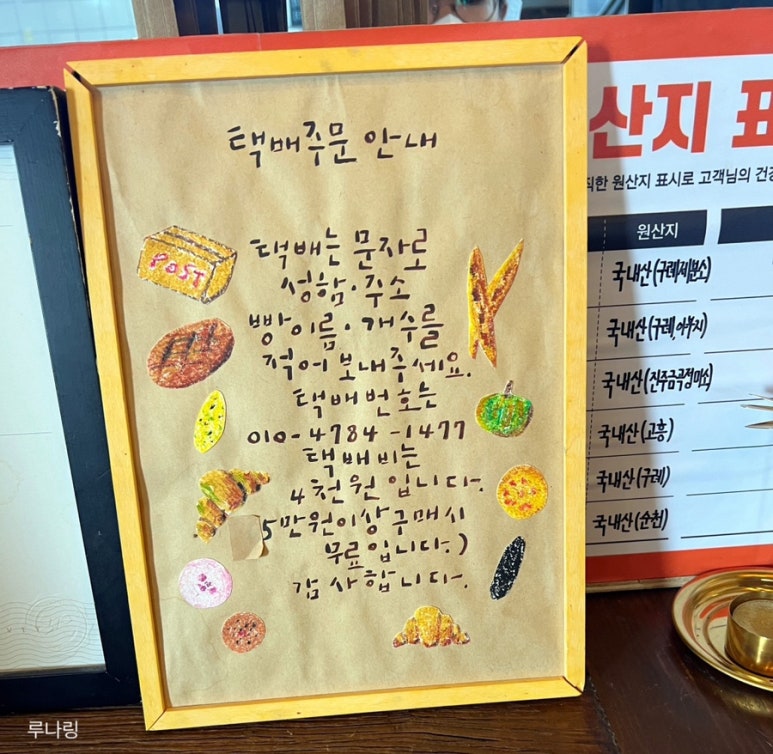 택배주문 안내
POST
택배는 문자로
성함·주소
빵이름·개수를
적어 보내주세요.
택배번호는
010-4784-1477
택배비는
4천원 입니다.
5만원이상 구매시
무료입니다.)
감사합니다.
산지 표
직한 원산지 표시로 고객님의 건강
원산지
국내산(구례제분소)
국내산(구례,아부지)
국내산(진주금곡정미소)
국내산(고흥)
국내산(구례)
국내산(순천)
루나링